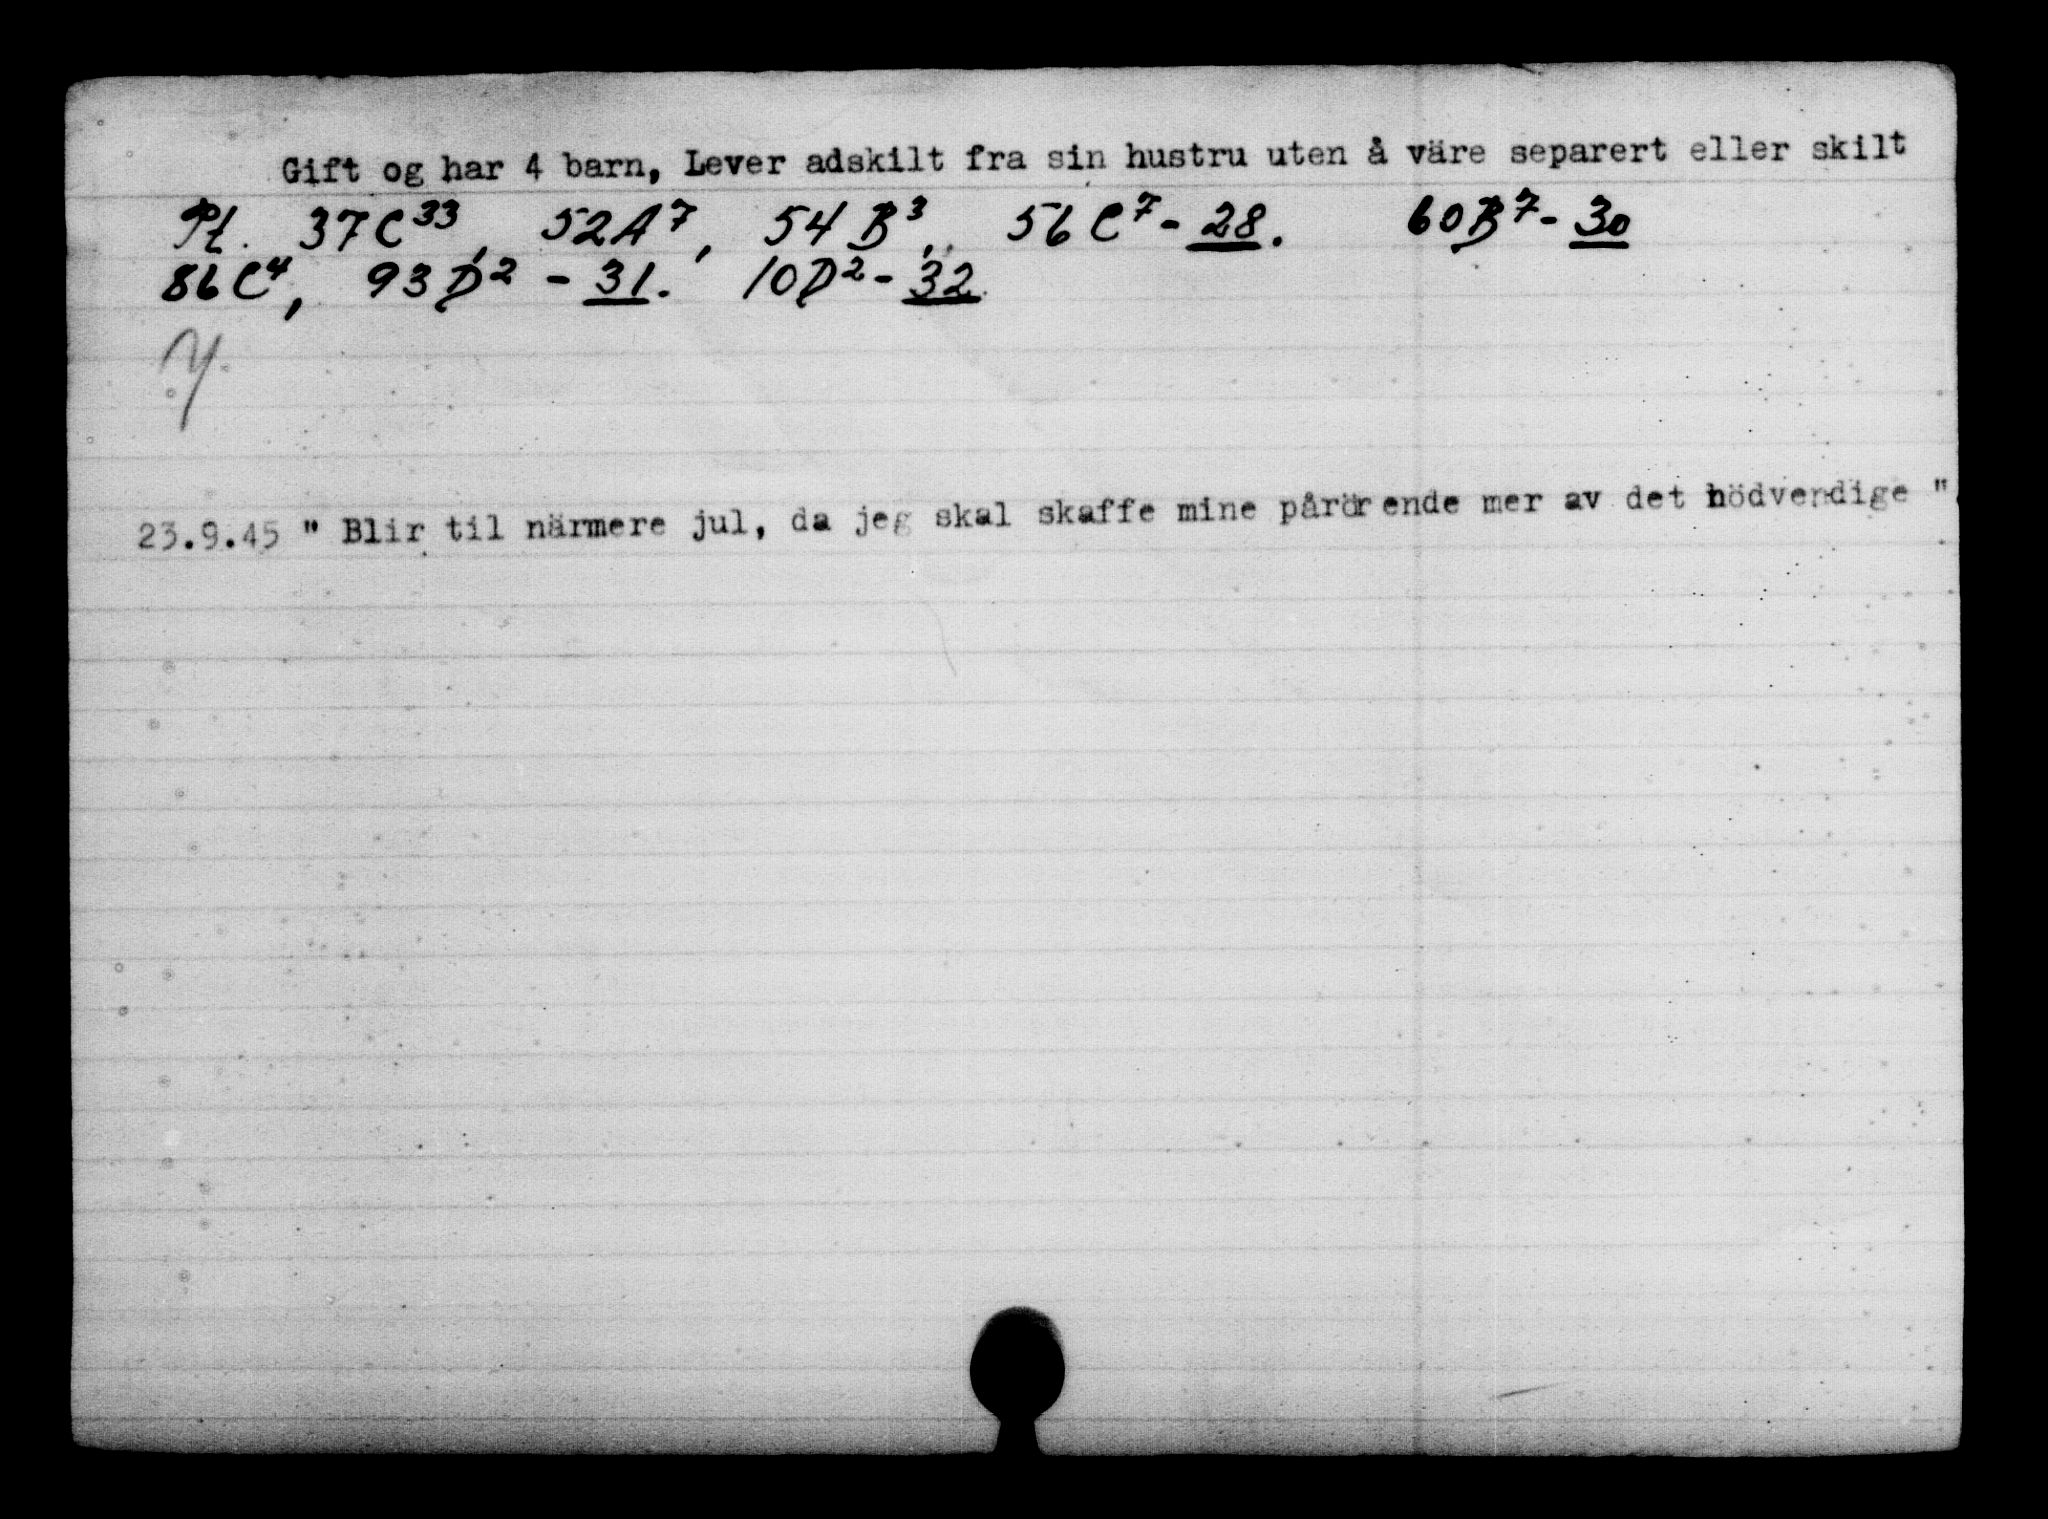 Gift og har 4 barn, Lever adskilt fra sin hustru uten å väre separert eller skilt
Pt. 37C³³, 52A⁷, 54B³, 56C⁷-28. 60B⁷-30
86C⁴, 93D²-31. 10D²-32
23.9.45 " Blir til närmere jul, da jeg skal skaffe mine pårörende mer av det nödvendige "